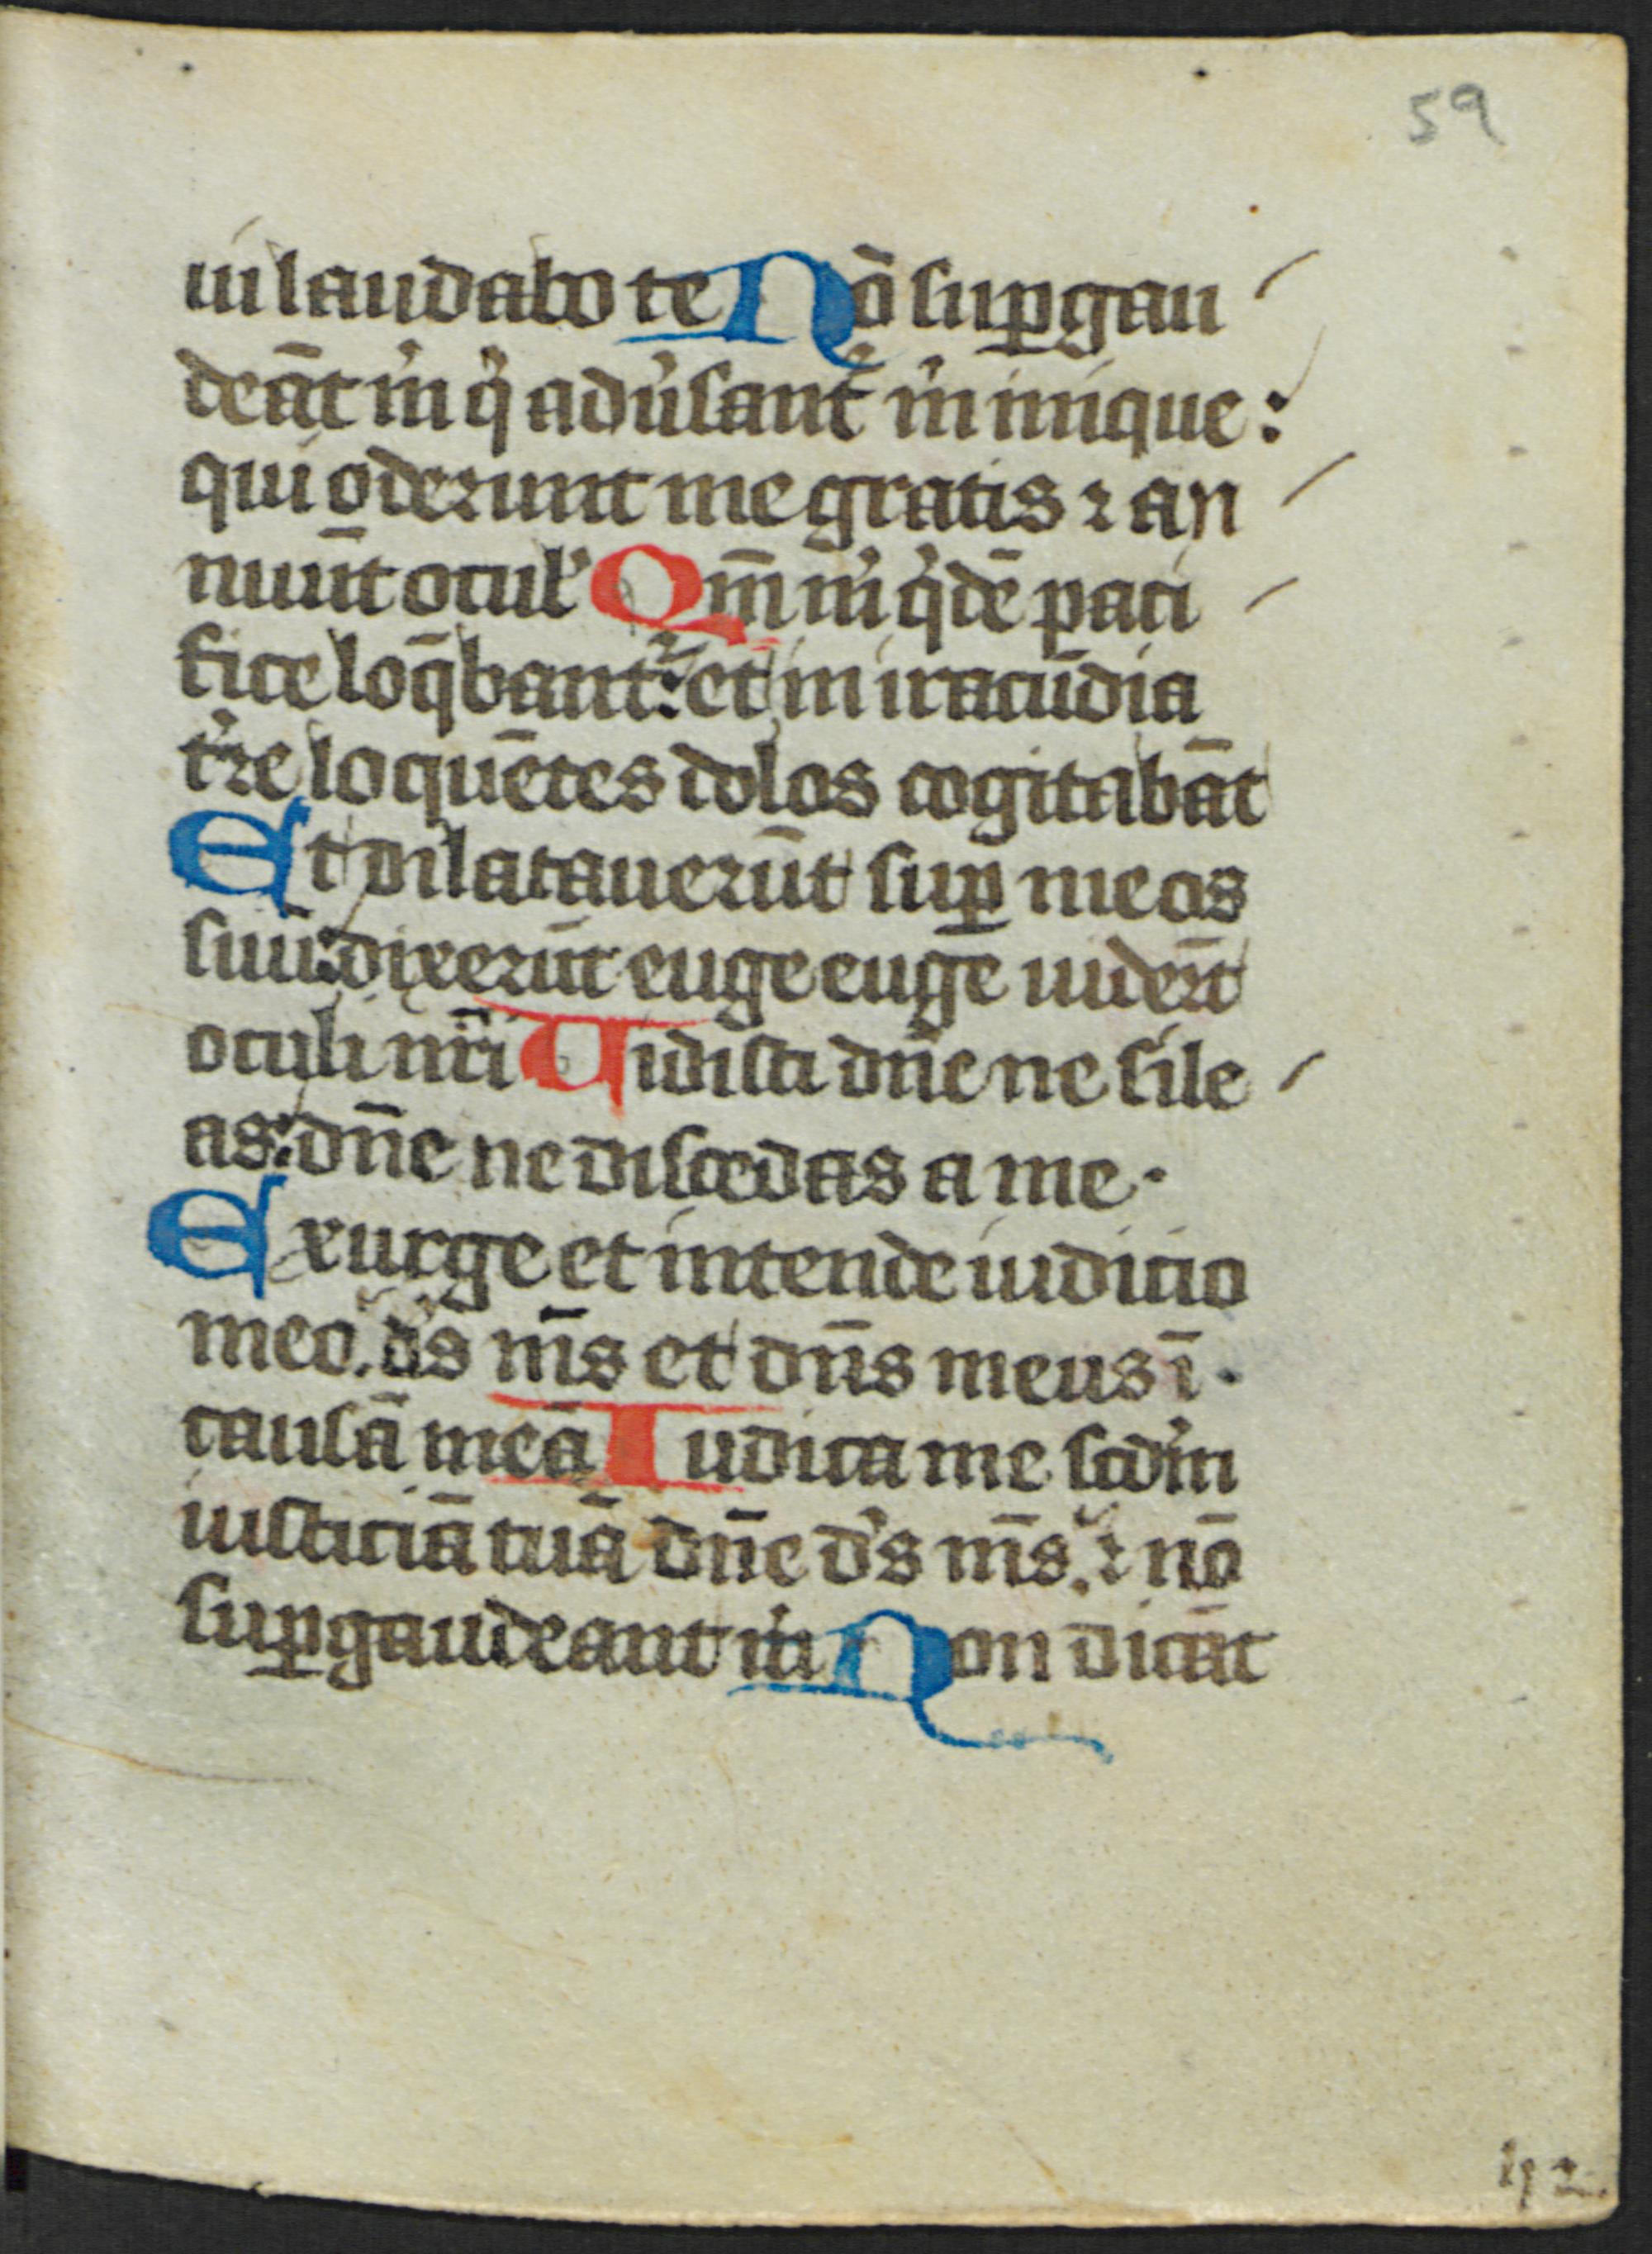 59
ui laudabo te Nō sup̱gau
deāt m̉ q̉ adu̓sant᷑ m̉ inique :
qui oderunt me gratis ⁊ an
nuūt ocul' Qm̄ m̉ q̉dē paci
fice loq̄bant᷑: et in iracūdia
t̓re loquētes dolos cogitabāt
Et dilatauerūt sup̱ me os
suū: dixerūt euge euge uidert̄
oculi nr̄i Uidisti dn̄e ne sile
as: dn̄e ne discedas a me ·
Exurge et intende iudicio
meo. d's m̄s et dn̄s meus ī ·
causā meā Iudica me scd'm
iusticiā tuā dn̄e d's m̄s. ⁊ nō
sup̱gaudeant m̉ Non dicāt